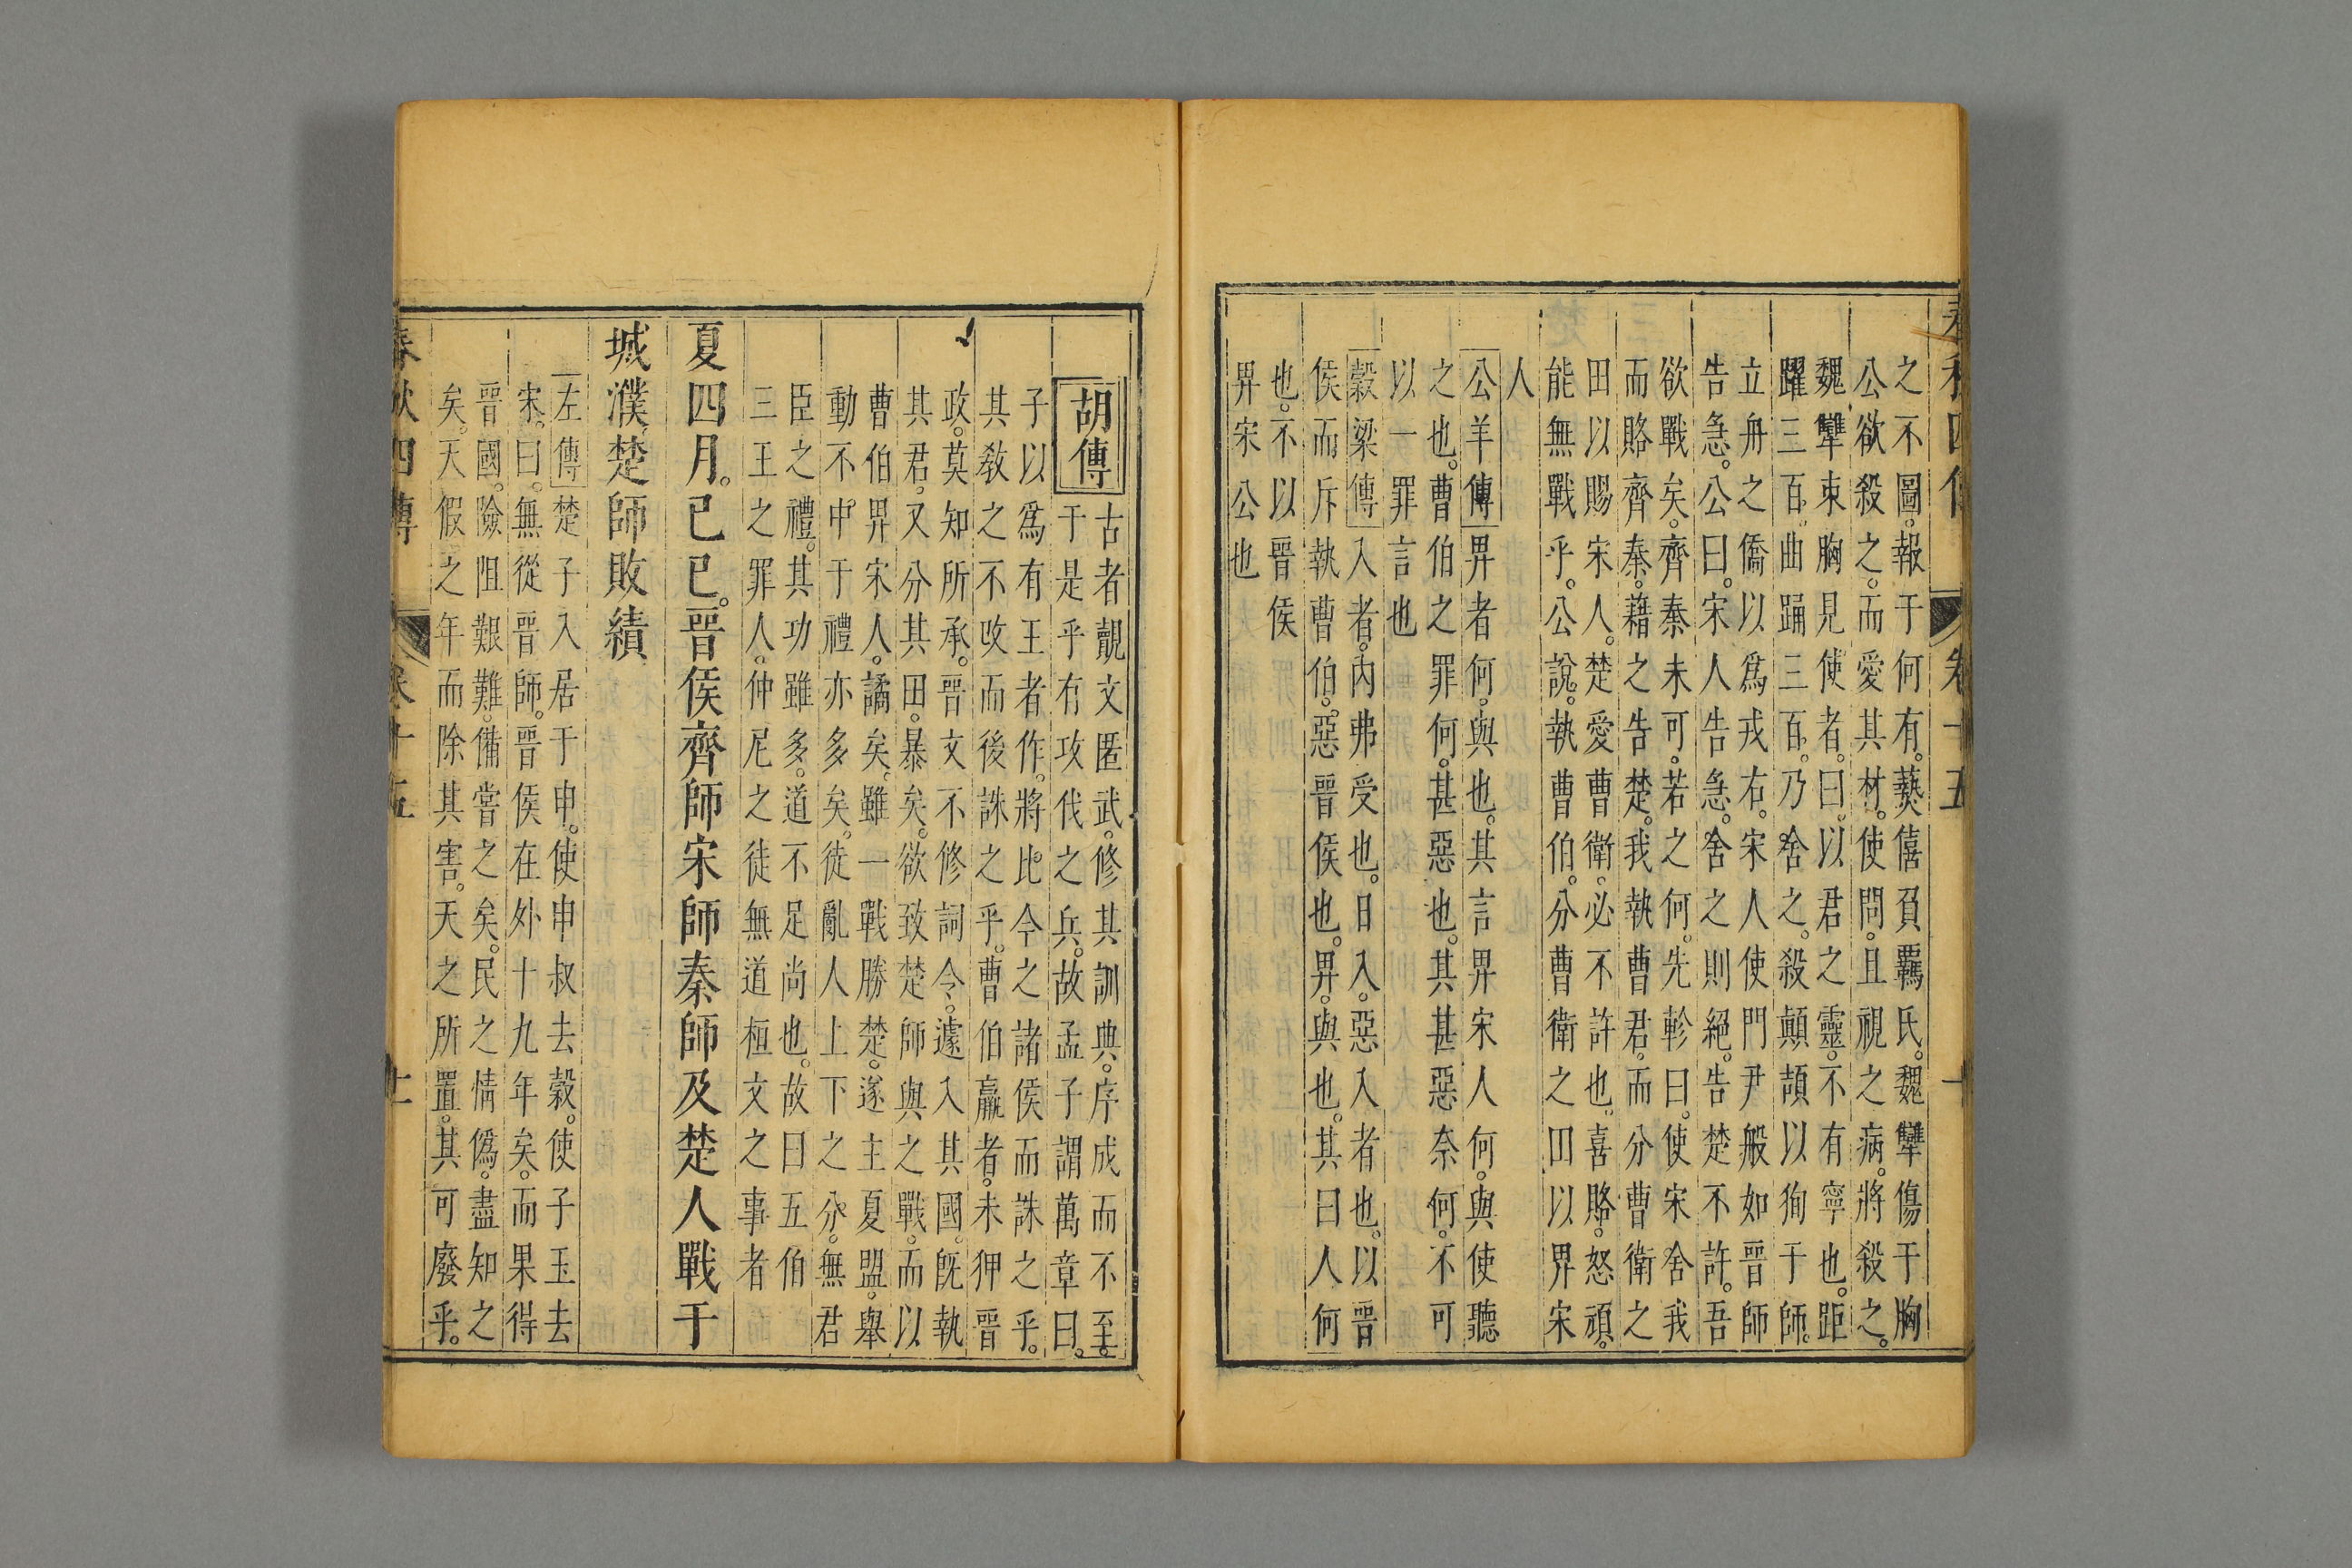 春秋四傳 卷十五 十
之不圖報于何有爇僖負羈氏魏犨傷于胸
公欲殺之而愛其材使問且視之病將殺之
魏犨束胸見使者曰以君之靈不有寧也距
躍三百曲踊三百乃舍之殺顛頡以狥于師
立舟之僑以爲戎右宋人使門尹般如晉師
告急公曰宋人告急舍之則絕告楚不許吾
欲戰矣齊秦未可若之何先軫曰使宋舍我
而賂齊秦藉之告楚我執曹君而分曹衛之
田以賜宋人楚愛曹衛必不許也喜賂怒頑
能無戰乎公說執曹伯分曹衛之田以畀宋
人
公羊傳畀者何與也其言畀宋人何與使聽
之也曹伯之罪何甚惡也其甚惡奈何不可
以一罪言也
穀梁傳入者內弗受也日入惡入者也以晉
侯而斥執曹伯惡晉侯也畀與也其曰人何
也不以晉侯
畀宋公也
胡傳古者覿文匿武修其訓典序成而不至
于是乎有攻伐之兵故孟子謂萬章曰
子以爲有王者作將比今之諸侯而誅之乎
其敎之不攺而後誅之乎曹伯羸者未狎晉
政莫知所承晉文不修詞令遽入其國旣執
其君又分其田暴矣欲致楚師與之戰而以
曹伯畀宋人譎矣雖一戰勝楚遂主夏盟舉
動不中于禮亦多矣徒亂人上下之分無君
臣之禮其功雖多道不足尚也故曰五伯
三王之罪人仲尼之徒無道桓文之事者
夏四月己巳晉侯齊師宋師秦師及楚人戰于
城濮楚師敗績
左傳楚子入居于申使申叔去穀使子玉去
宋曰無從晉師晉侯在外十九年矣而果得
晉國險阻艱難備嘗之矣民之情僞盡知之
矣天假之年而除其害天之所置其可廢乎
春秋四傳 卷十五 十一